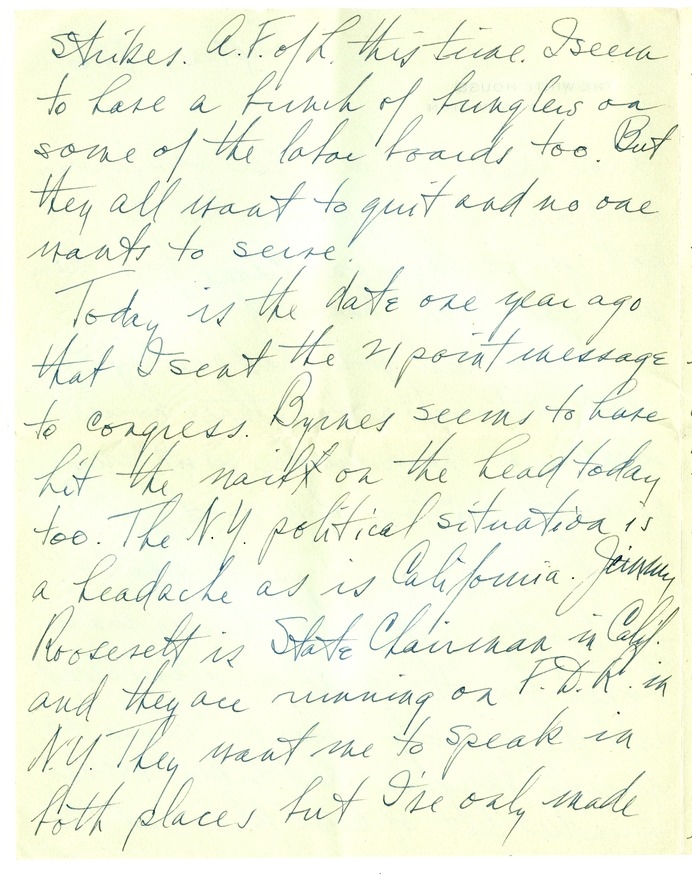 strikes. A.F. of L. this time. I seem
to have a bunch of bunglers on
some of the labor boards too. But
they all want to quit and no one
wants to serve.
Today is the date one year ago
that I sent the 21 point message
to congress. Byrnes seems to have
hit the nail on the head today
too. The N.Y. political situation is
a headache as is California. Jimmy
Roosevelt is State Chairman in Calif.
and they are running on F.D.R. in
N.Y. They want me to speak in
both places but I've only made